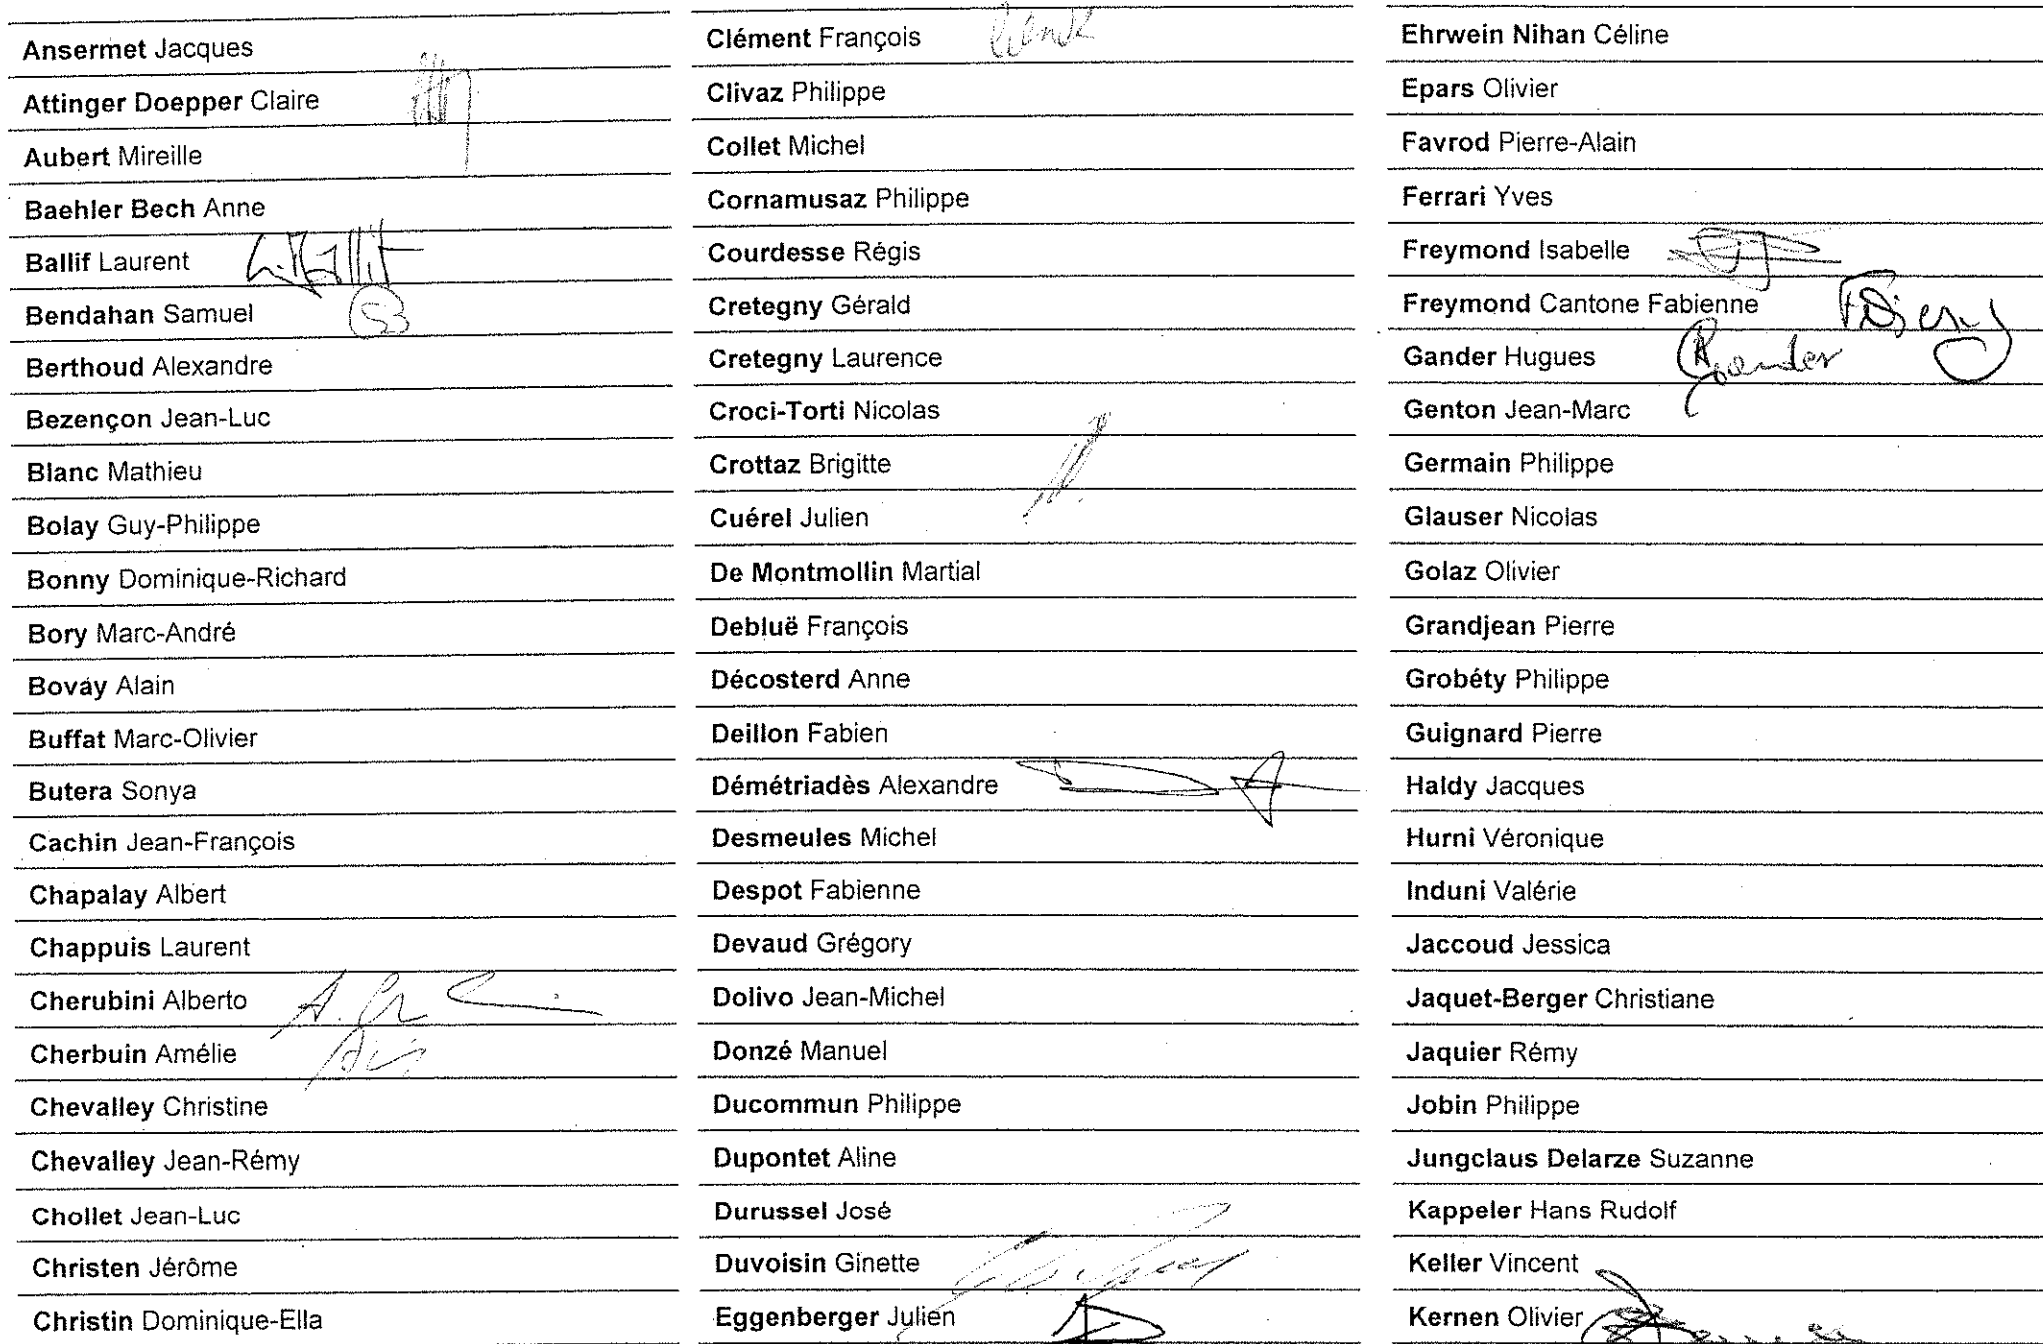 Ansermet Jacques
Attinger Doepper Claire
Aubert Mireille
Baehler Bech Anne
Ballif Laurent
Bendahan Samuel
Berthoud Alexandre
Bezençon Jean-Luc
Blanc Mathieu
Bolay Guy-Philippe
Bonny Dominique-Richard
Bory Marc-André
Bovay Alain
Buffat Marc-Olivier
Butera Sonya
Cachin Jean-François
Chapalay Albert
Chappuis Laurent
Cherubini Alberto
Cherbuin Amélie
Chevalley Christine
Chevalley Jean-Rémy
Chollet Jean-Luc
Christen Jérôme
Christin Dominique-Ella
Clément François
Clivaz Philippe
Collet Michel
Cornamusaz Philippe
Courdesse Régis
Cretegny Gérald
Cretegny Laurence
Croci-Torti Nicolas
Crottaz Brigitte
Cuérel Julien
De Montmollin Martial
Debluë François
Décosterd Anne
Deillon Fabien
Démétriadès Alexandre
Desmeules Michel
Despot Fabienne
Devaud Grégory
Dolivo Jean-Michel
Donzé Manuel
Ducommun Philippe
Dupontet Aline
Durussel José
Duvoisin Ginette
Eggenberger Julien
Ehrwein Nihan Céline
Epars Olivier
Favrod Pierre-Alain
Ferrari Yves
Freymond Isabelle
Freymond Cantone Fabienne
Gander Hugues Gander
Genton Jean-Marc
Germain Philippe
Glauser Nicolas
Golaz Olivier
Grandjean Pierre
Grobéty Philippe
Guignard Pierre
Haldy Jacques
Hurni Véronique
Induni Valérie
Jaccoud Jessica
Jaquet-Berger Christiane
Jaquier Rémy
Jobin Philippe
Jungclaus Delarze Suzanne
Kappeler Hans Rudolf
Keller Vincent
Kernen Olivier